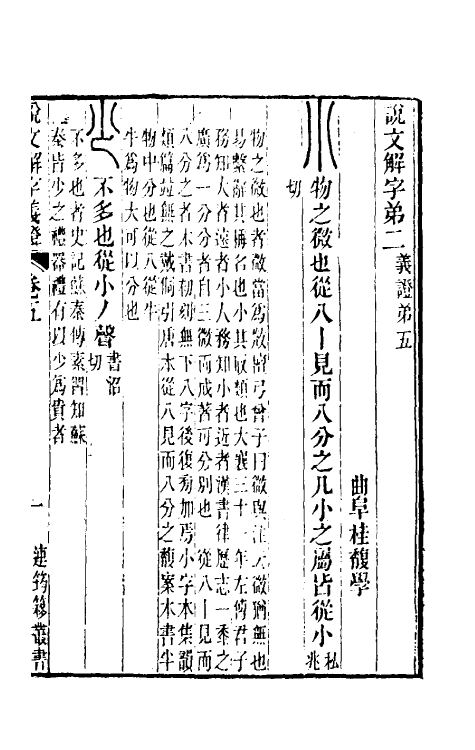 說文解字弟二 義證弟五
曲阜桂馥學
物之微也從八丨見而八分之凡小之屬皆從小 私兆
切
物之微也者微當爲𢼸檀弓曾子曰微與注云微猶無也
易繫辭其稱名也小其取類也大襄三十一年左傳君子
務知大者遠者小人務知小者近者漢書律歷志一黍之
廣爲一分分者自三微而成著可分別也 從八丨見而
八分之者本書初刻無下八字後復剜加馬小字本集韻
類篇竝無之戴侗引唐本從八見而八分之馥案本書半
物中分也從八從牛
牛爲物大可以分也
不多也從小丿聲 書沼
切
不多也者史記蘇秦傳素習知蘇
秦皆少之禮器禮有以少爲貴者
說文解字義證 卷五
一
連筠簃叢書